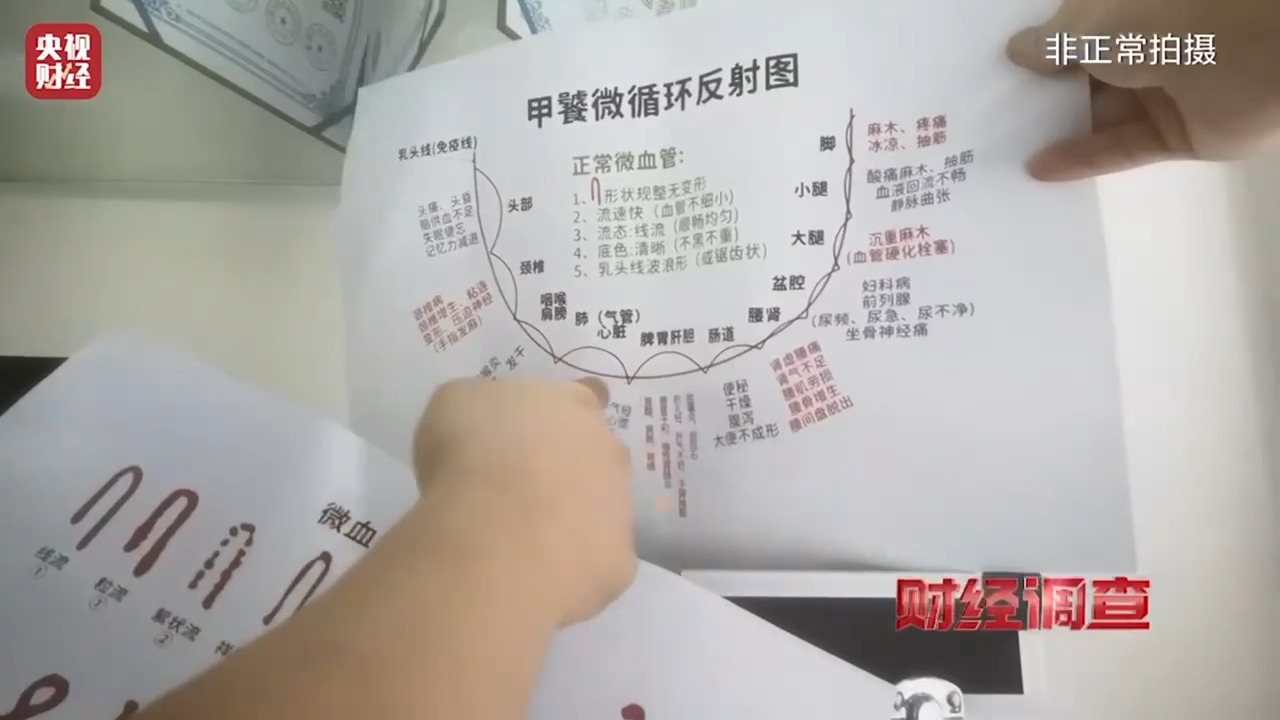 央视
财经
非正常拍摄
甲饕微循环反射图
乳头线(免疫线)
正常微血管:
1、形状规整无变形
2、流速快（血管不细小）
3、流态:线流（顺畅均匀）
4、底色:清晰（不黑不重）
5、乳头线波浪形（或锯齿状）
头部
头痛、头昏
脑供血不足
失眠健忘
记忆力减退
颈椎
颈椎病
颈椎增生、粘连
变形、压迫神经
(手指发麻)
咽喉
肩膀
发干
肺（气管）
心脏
脾胃肝胆
肠道
便秘
干燥
腹泻
大便不成形
腰肾
肾虚腰痛
肾气不足
腰肌劳损
腰骨增生
腰间盘脱出
盆腔
妇科病
前列腺
(尿频、尿急、尿不净)
坐骨神经痛
大腿
沉重麻木
(血管硬化栓塞)
小腿
酸痛麻木、抽筋
血液回流不畅
静脉曲张
脚
麻木、疼痛
冰凉、抽筋
微血
线流
①
粒流
①
絮状流
②
财经调查